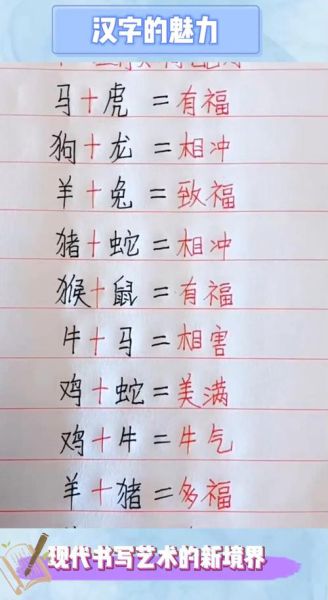 汉字的魅力
马+虎=有福
狗+龙=相冲
羊+兔=致福
猪+蛇=相冲
猴+鼠=有福
牛+马=相害
鸡+蛇=美满
鸡+牛=牛气
羊+猪=多福
现代书写艺术的新境界